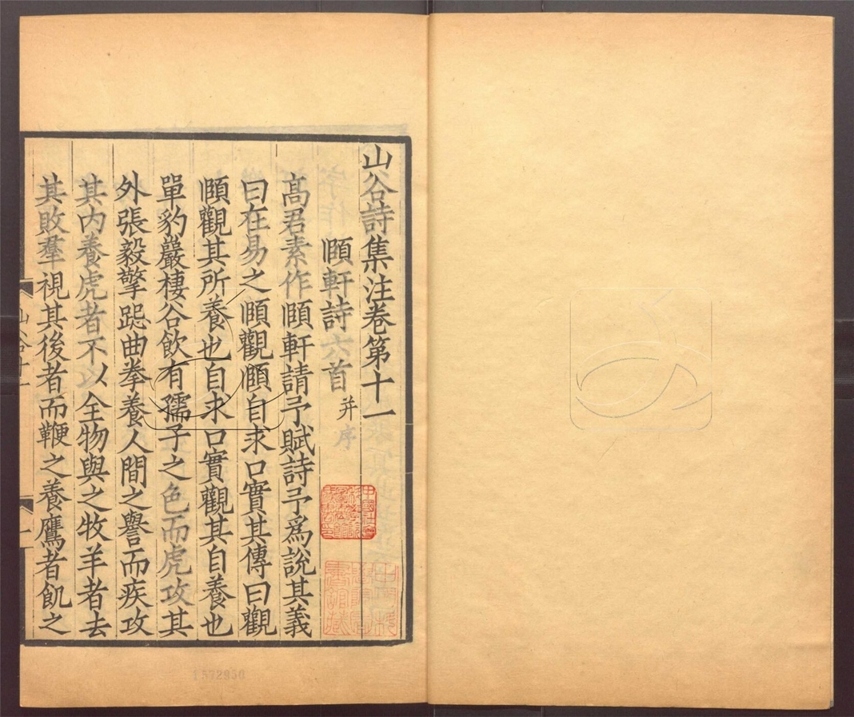 山谷詩集注卷第十一
頤軒詩六首 并序
高君素作頤軒請予賦詩予爲說其義
曰在易之頤觀頤自求口實其傳曰觀
頤觀其所養也自求口實觀其自養也
單豹巖棲谷飲有孺子之色而虎攻其
外張毅擎跽曲拳養人間之譽而疾攻
其内養虎者不以全物與之牧羊者去
其敗羣視其後者而鞭之養鷹者飢之
山谷十一
一
1572950